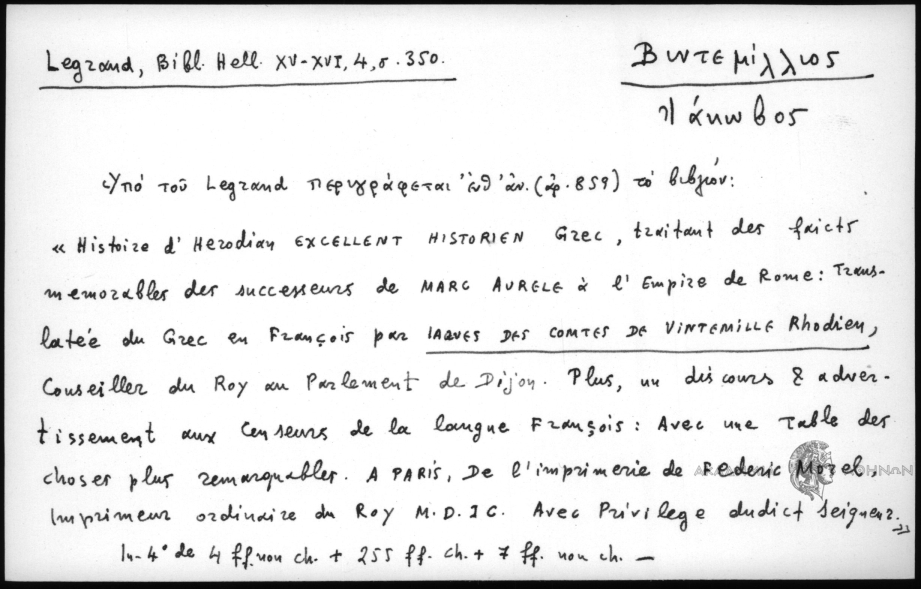 Legrand, Bibl. Hell. XV-XVI, 4, σ. 350.
Βιντεμίλλιος
Ἰάκωβος
Ὑπό τοῦ Legrand περιγράφεται ἐνθ' ἀν. (ἀρ. 859) τό βιβλίον:
« Histoire d' Herodian EXCELLENT HISTORIEN Grec, traitant des faicts
memorables des successeurs de MARC AURELE à l' Empire de Rome: Trans-
latée du Grec en François par IAQUES DES COMTES DE VINTEMILLE Rhodien,
Conseiller du Roy au Parlement de Dijon. Plus, un discours & adver-
tissement aux Censeurs de la langue François: Avec une Table des
choses plus remarquables. A PARIS, De l'imprimerie de Federic Morel,
Imprimeur ordinaire du Roy M.D.IC. Avec Privilege dudict Seigneur.»
In-4° de 4 ff. non ch. + 255 ff. ch. + 7 ff. non ch. —